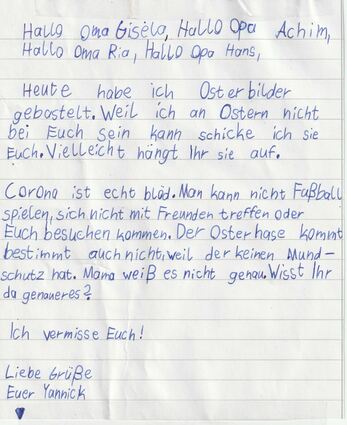 Hallo Oma Gisela, Hallo Opa Achim,
Hallo Oma Ria, Hallo Opa Hans,
Heute habe ich Osterbilder
gebastelt. Weil ich an Ostern nicht
bei Euch sein kann schicke ich sie
Euch. Vielleicht hängt Ihr sie auf.
Corona ist echt blöd. Man kann nicht Fußball
spielen, sich nicht mit Freunden treffen oder
Euch besuchen kommen. Der Osterhase kommt
bestimmt auch nicht, weil der keinen Mund-
schutz hat. Mama weiß es nicht genau. Wisst Ihr
da genaueres?
Ich vermisse Euch!
Liebe Grüße
Euer Yannick